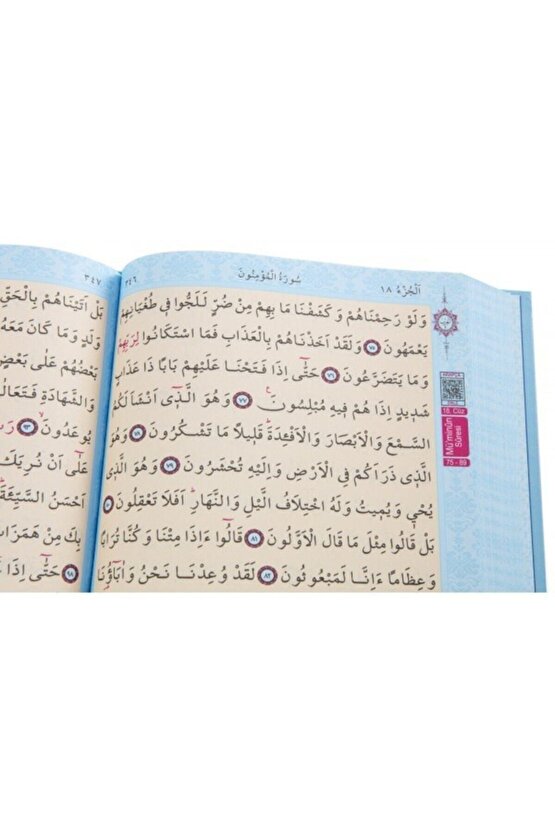 اَلْجُزْءُ ١٨
سُورَةُ الْمُؤْمِنُونَ
٣٤٦
وَلَوْ رَحِمْنَاهُمْ وَكَشَفْنَا مَا بِهِمْ مِنْ ضُرٍّ لَلَجُّوا فٖى طُغْيَانِهِمْ
يَعْمَهُونَ ٧٥ وَلَقَدْ اَخَذْنَاهُمْ بِالْعَذَابِ فَمَا اسْتَكَانُوا لِرَبِّهِمْ
وَمَا يَتَضَرَّعُونَ ٧٦ حَتّٰٓى اِذَا فَتَحْنَا عَلَيْهِمْ بَابًا ذَا عَذَابٍ
شَدٖيدٍ اِذَا هُمْ فٖيهِ مُبْلِسُونَ ٧٧ وَهُوَ الَّذٖٓى اَنْشَاَ لَكُمُ
السَّمْعَ وَالْاَبْصَارَ وَالْاَفْـِٔدَةَ قَلٖيلًا مَا تَشْكُرُونَ ٧٨ وَهُوَ
الَّذٖى ذَرَاَكُمْ فِى الْاَرْضِ وَاِلَيْهِ تُحْشَرُونَ ٧٩ وَهُوَ الَّذٖى
يُحْيٖى وَيُمٖيتُ وَلَهُ اخْتِلَافُ الَّيْلِ وَالنَّهَارِ اَفَلَا تَعْقِلُونَ ٨٠
بَلْ قَالُوا مِثْلَ مَا قَالَ الْاَوَّلُونَ ٨١ قَالُٓوا ءَاِذَا مِتْنَا وَكُنَّا تُرَابًا
وَعِظَامًا ءَاِنَّا لَمَبْعُوثُونَ ٨٢ لَقَدْ وُعِدْنَا نَحْنُ وَاٰبَٓاؤُ۬نَا
18. Cüz
Mü'minûn
Sûresi
75 - 89
٣٤٧
بَلْ اَتَيْنَاهُمْ بِالْحَقِّ
وَلَدٍ وَمَا كَانَ مَعَهُ
بَعْضُهُمْ عَلٰى بَعْضٍ
وَالشَّهَادَةِ فَتَعَالٰى
يُوعَدُونَ ٩٣
عَلٰٓى اَنْ نُرِيَكَ
اَحْسَنُ السَّيِّئَةَ
بِكَ مِنْ هَمَزَاتِ
٩٨ حَتّٰٓى اِذَا